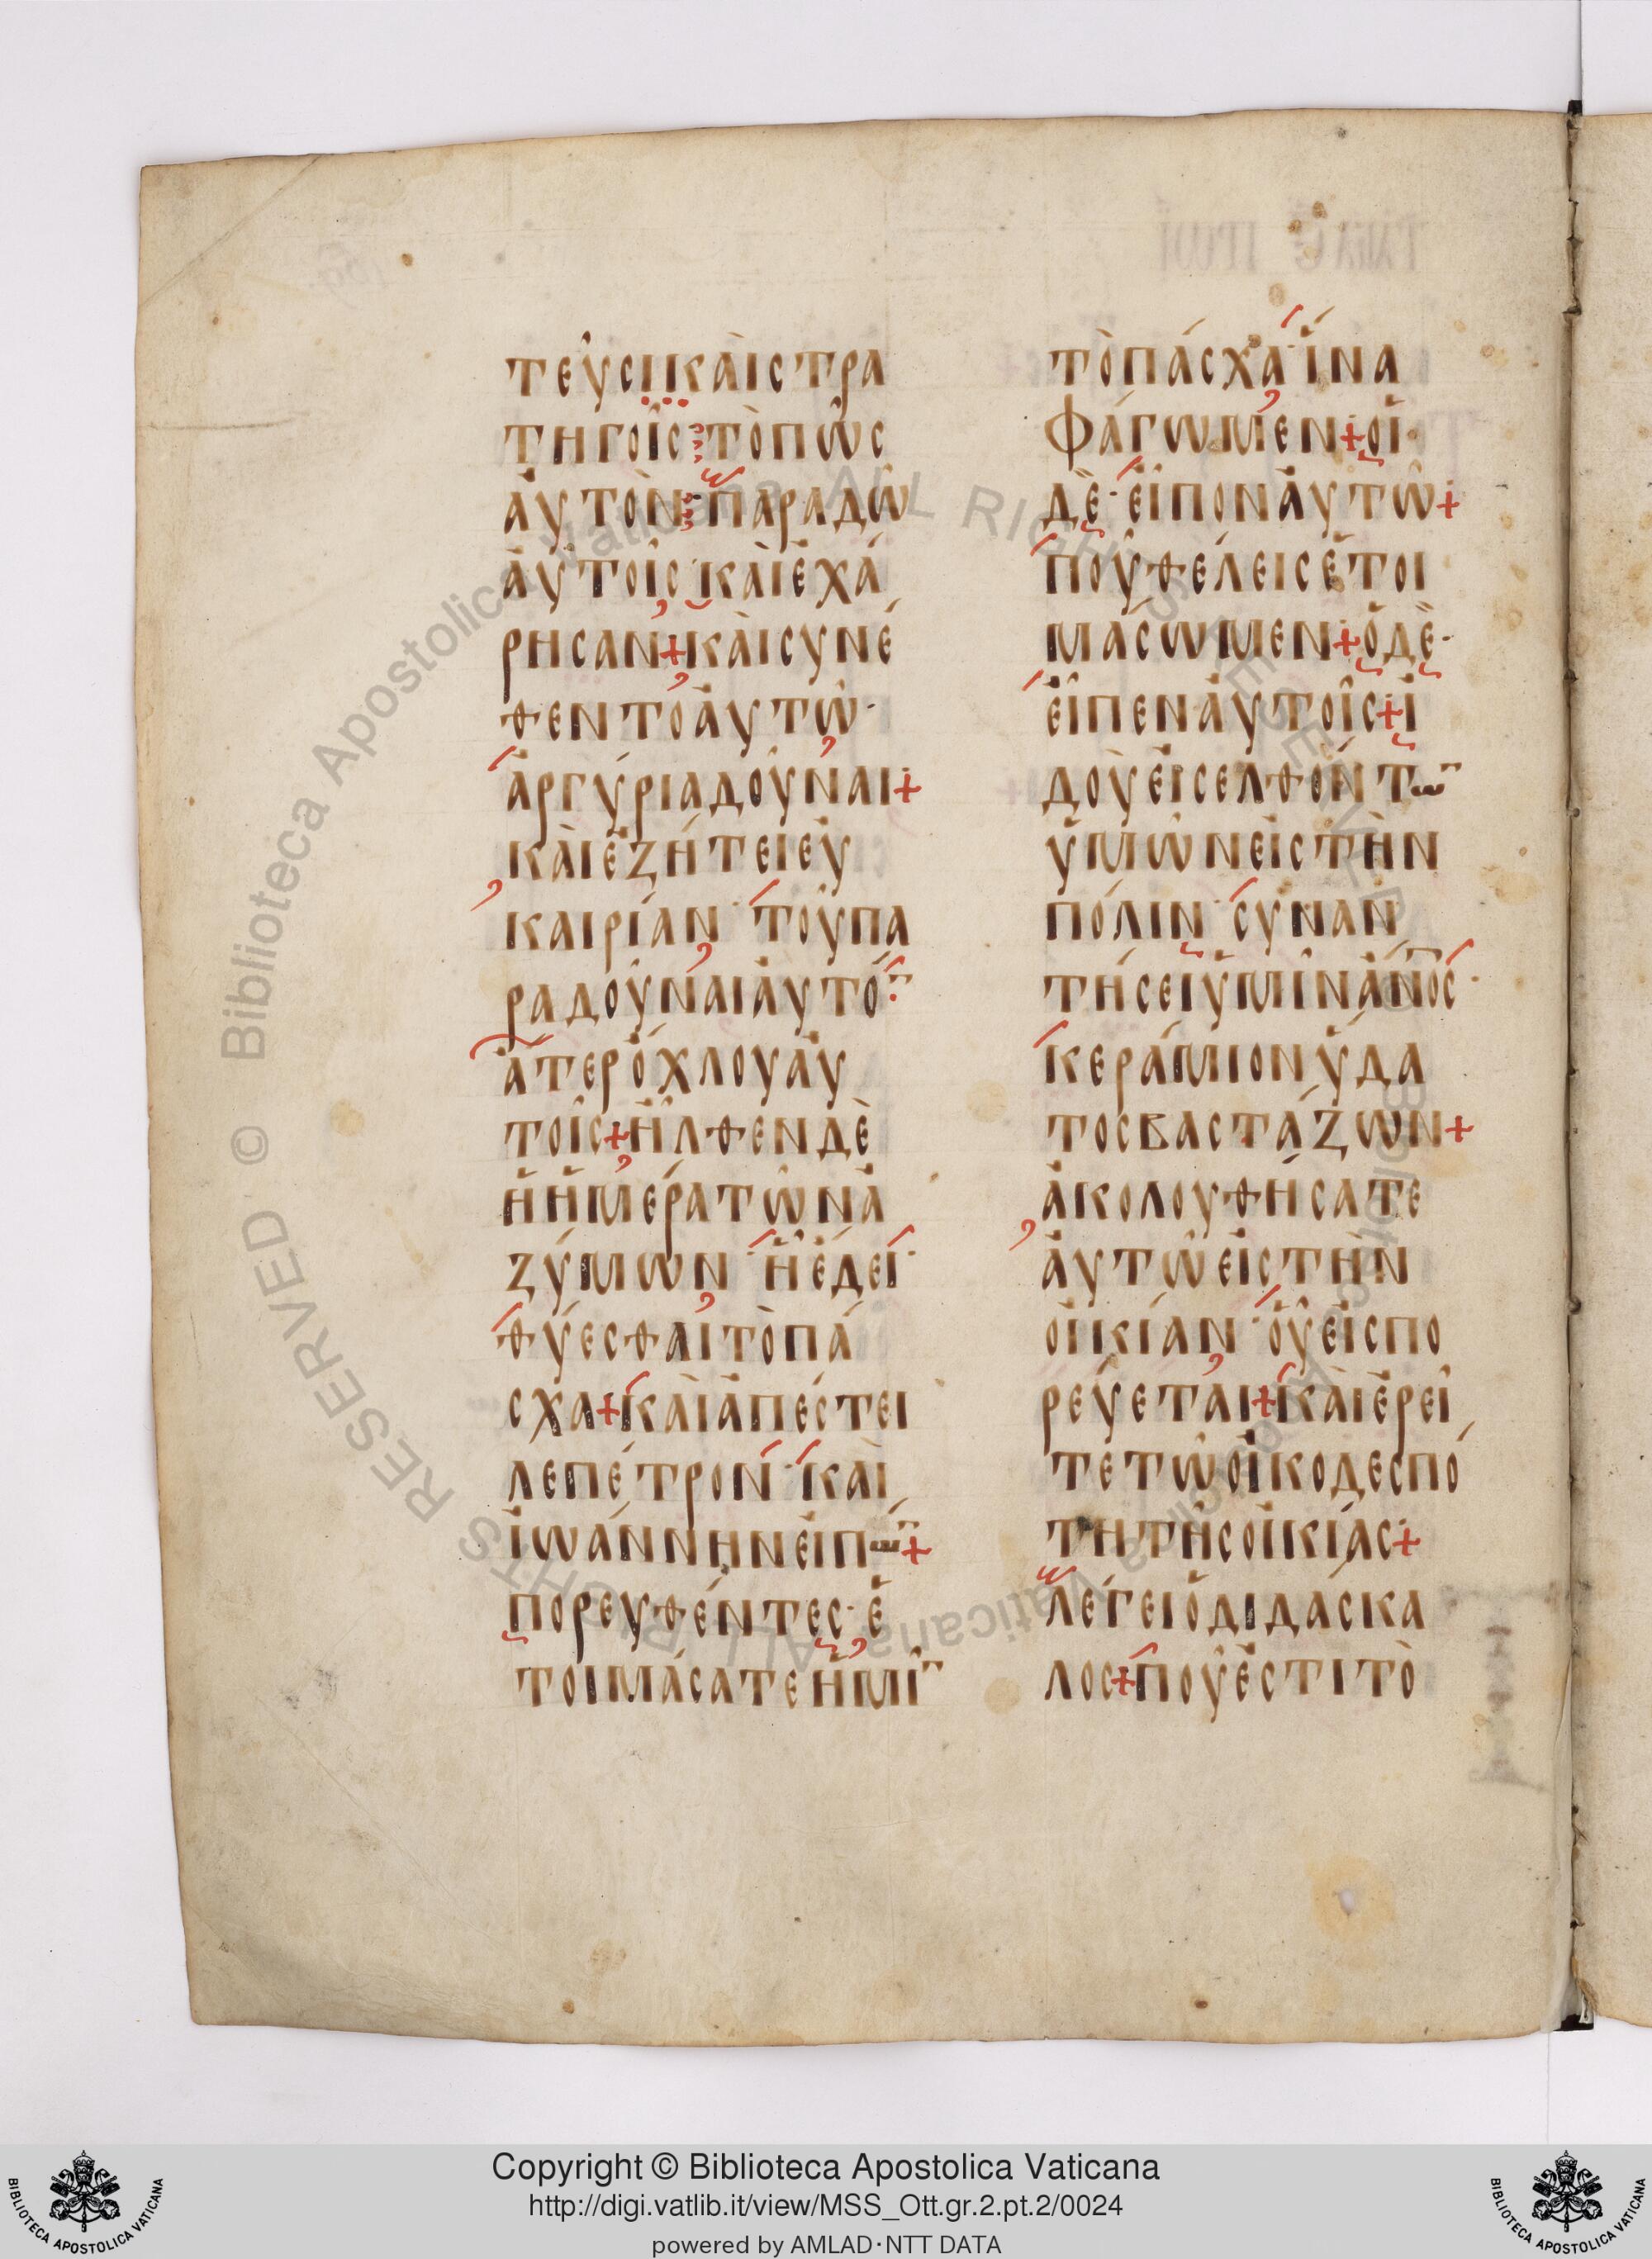 τεῦσι καὶ στρα
τηγοῖς τὸ πῶς
αὐτὸν παραδῶ
αὐτοῖς καὶ ἐχά
ρησαν + καὶ συνέ
θεντο αὐτῶ·
ἀργύρια δοῦναι +
καὶ ἐζήτει εὐ
καιρίαν· τοῦ πα
ραδοῦναι αὐτό̅
ἄτερ ὄχλου αὐ
τοῖς + ἦλθεν δὲ
ἡ ἡμέρα τῶν ἀ
ζύμων· ἧ ἔδει·
θύεσθαι τὸ πά
σχα + καὶ ἀπέστει
λε πέτρον· καὶ
ἰωάννην εἰπώ̅ +
πορευθέντες· ἑ
τοιμάσατε ἡμῖ̅
τὸ πάσχα· ἵνα
φάγωμεν + οἱ·
δὲ· εἶπον αὐτῶ +
ποῦ θέλεις ἑτοι
μάσωμεν + ὁ δὲ·
εἶπεν αὐτοῖς + ἰ
δοὺ εἰσελθόντω̅
ὑμῶν εἰς τὴν
πόλιν· συναν
τήσει ὑμῖν ἄνο̅ς·
κεράμιον ὕδα
τος βαστάζων +
ἀκολουθήσατε
αὐτῶ εἰς τὴν
οἰκίαν· οὗ εἰσπο
ρεύεται + καὶ ἐρεῖ
τε τῶ οἰκοδεσπό
τη τῆς οἰκίας +
λέγει ὁ διδάσκα
λος + ποῦ ἐστι τὸ
Biblioteca Apostolica Vaticana ALL RIGHTS RESERVED © Biblioteca Apostolica Vaticana ALL RIGHTS RESERVED ©
Copyright © Biblioteca Apostolica Vaticana
http://digi.vatlib.it/view/MSS_Ott.gr.2.pt.2/0024
powered by AMLAD·NTT DATA
BIBLIOTECA APOSTOLICA VATICANA
BIBLIOTECA APOSTOLICA VATICANA